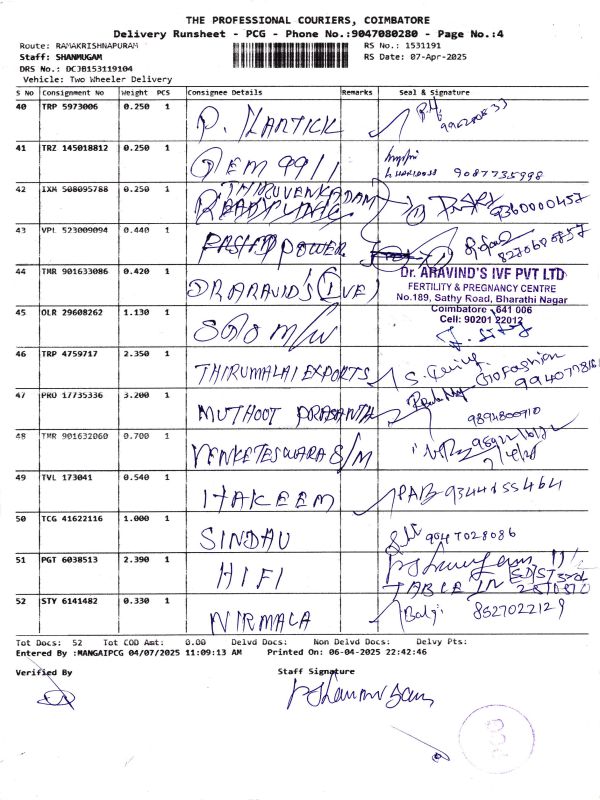 THE PROFESSIONAL COURIERS, COIMBATORE
Delivery Runsheet - PCG - Phone No.:9047080280 - Page No.:4
Route: RAMAKRISHNAPURAM RS No.: 1531191
Staff: SHANMUGAM RS Date: 07-Apr-2025
DRS No.: DCJB153119104
Vehicle: Two Wheeler Delivery
S No Consignment No Weight PCS Consignee Details Remarks Seal & Signature
40 TRP 5973006 0.250 1 P. KARTICK
41 TRZ 145018812 0.250 1 GEM 9911 9087735998
42 IXM 508095788 0.250 1 THIRUVENKADAM 9360000457
43 VPL 523009094 0.440 1 RASHID POWER
44 TMR 901633086 0.420 1 DR ARAVID'S (IVF)
Dr. ARAVIND'S IVF PVT LTD
FERTILITY & PREGNANCY CENTRE
No.189, Sathy Road, Bharathi Nagar
Coimbatore - 641 006
Cell: 90201 22012
45 OLR 29608262 1.130 1
46 TRP 4759717 2.350 1 THIRUMALAI EXPORTS
47 PRO 17735336 3.200 1 MUTHOOT PRASANTH 9894800910
48 TMR 901632060 0.700 1 VENKETESWARA S/M
49 TVL 173041 0.540 1 HAKEEM
50 TCG 41622116 1.000 1 SINDAU 9047028086
51 PGT 6038513 2.390 1 HIFI
52 STY 6141482 0.330 1 NIRMALA Balaji 8527022129
Tot Docs: 52 Tot COD Amt: 0.00 Delvd Docs: Non Delvd Docs: Delvy Pts:
Entered By :MANGAIPCG 04/07/2025 11:09:13 AM Printed On: 06-04-2025 22:42:46
Verified By Staff Signature